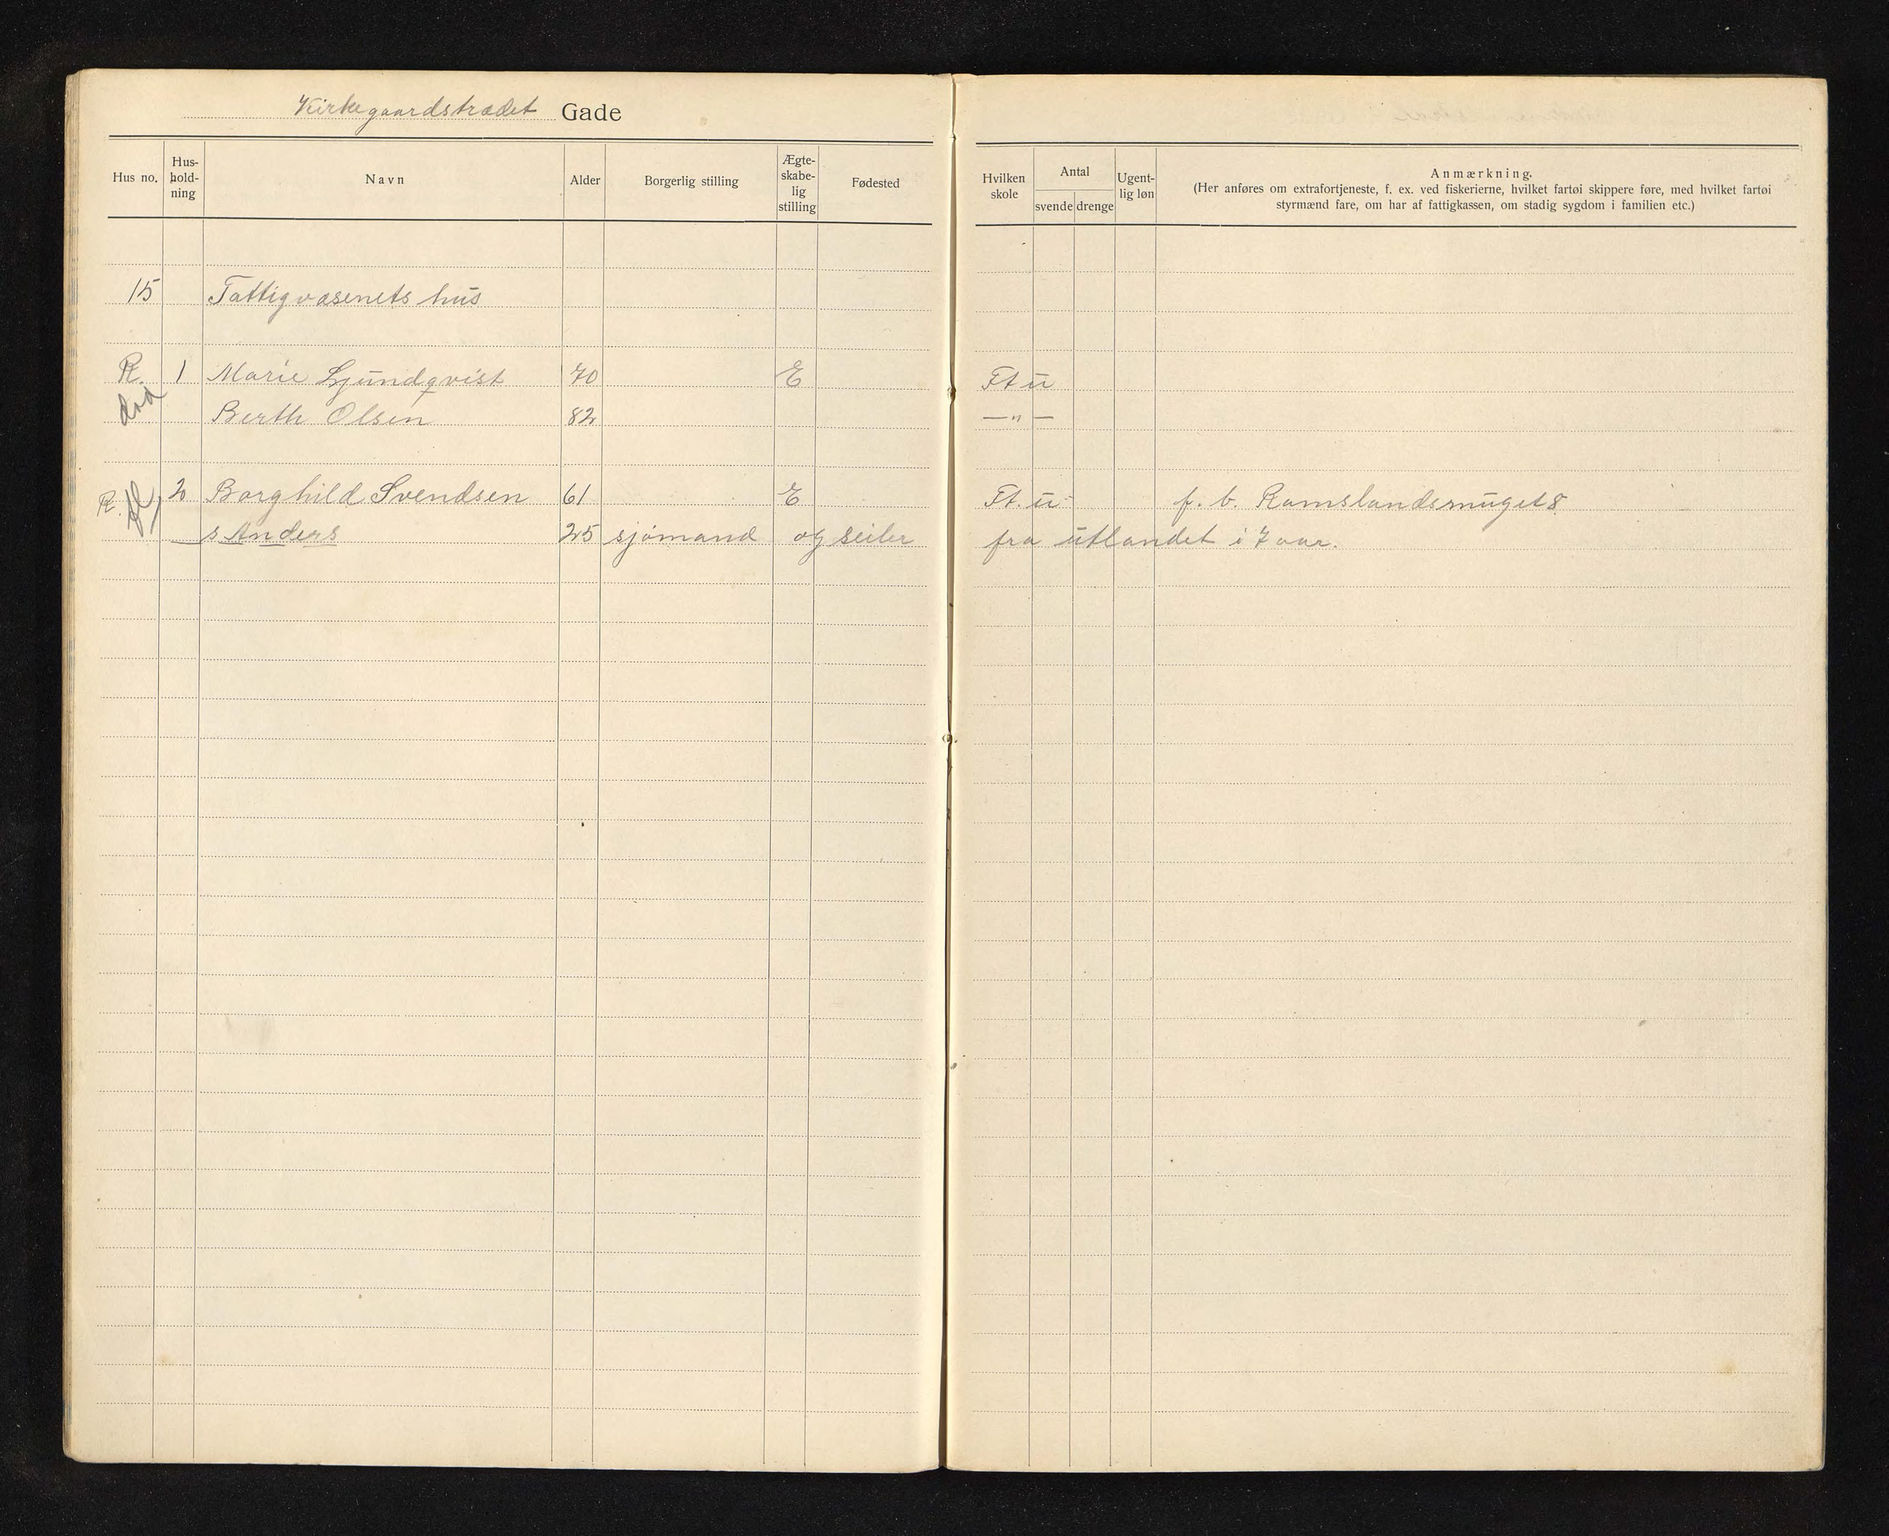 Kirkegaardstrædet Gade
Hus no. Hus-holdning Navn Alder Borgerlig stilling Ægte-skabe-lig stilling Fødested Hvilken skole Antal svende drenge Ugent-lig løn Anmærkning.
(Her anføres om extrafortjeneste, f. ex. ved fiskerierne, hvilket fartøi skippere føre, med hvilket fartøi
styrmænd fare, om har af fattigkassen, om stadig sygdom i familien etc.)
15 Fattigvæsenets hus
R. 1 Marie Ljundqvist 70 E Ft u
død Berth Olsen 82 — " —
R. fl 2 Borghild Svendsen 61 E Ft. u f. b. Ramslandsmuget 8.
s Anders 25 sjømand og seiler fra utlandet i 7 aar.